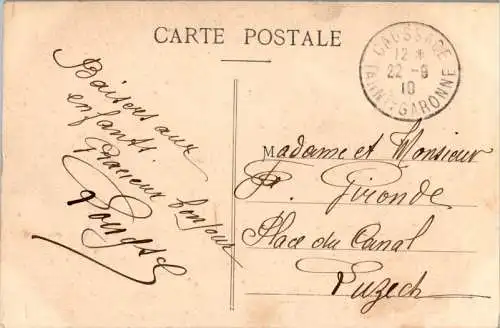 CARTE POSTALE
CAUSSADE
12 *
22 - 9
10
TARN-&-GARONNE
Baisers aux
enfants
Gracieux bonjour
Madame et Monsieur
Gironde
Place du Canal
Luzech